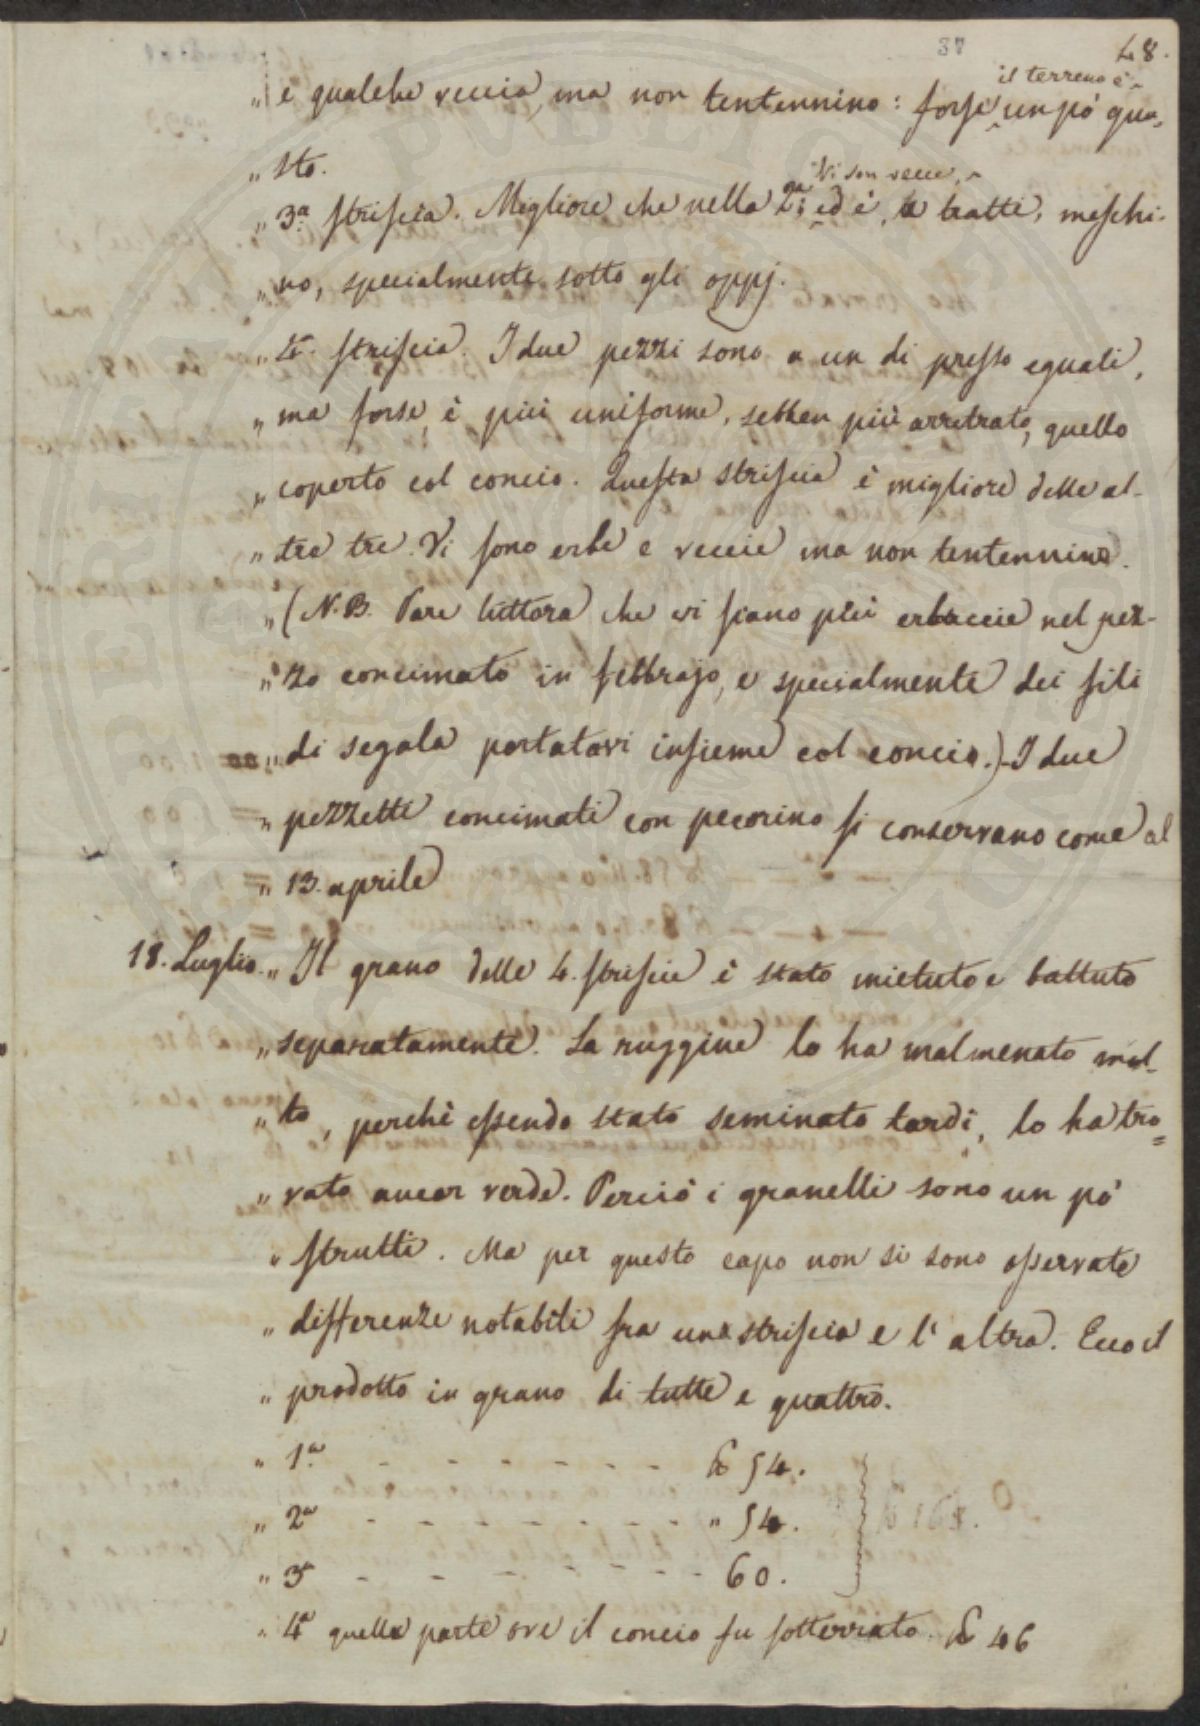 37 48.
il terreno è
„ e qualche veccia, ma non tentennino: forse un pò gua=
„ sto.
Vi son vecce,
„ 3.ª striscia. Migliore che nella 2ª; ed è, a tratti, meschi-
„ no, specialmente sotto gli oppj.
„ 4ª. striscia. I due pezzi sono a un di presso eguali,
„ ma forse è più uniforme, sebben più arretrato, quello
„ coperto col concio. Questa striscia è migliore delle al-
„ tre tre. Vi sono erbe e veccie ma non tentennino.
„ (N.B. Pare tuttora che vi siano più erbaccie nel pez-
„ zo concimato in febbrajo, e specialmente dei fili
„ di segala portatovi insieme col concio.) I due
„ pezzetti concimati con pecorino si conservano come al
„ 13. aprile
18. Luglio. „ Il grano delle 4. striscie è stato mietuto e battuto
„ separatamente. La ruggine lo ha malmenato mol-
„ to, perchè essendo stato seminato tardi, lo ha tro=
„ vato ancor verde. Perciò i granelli sono un pò
„ strutti. Ma per questo capo non si sono osservate
„ differenze notabili fra una striscia e l'altra. Ecco il
„ prodotto in grano di tutte e quattro.
„ 1.ª - - - - - - - ₤ 54.
„ 2ª - - - - - - - - „ 54. ₤ 168.
„ 3ª - - - - - - - - 60.
„ 4ª quella parte ove il concio fu sotterrato. ₤ 46